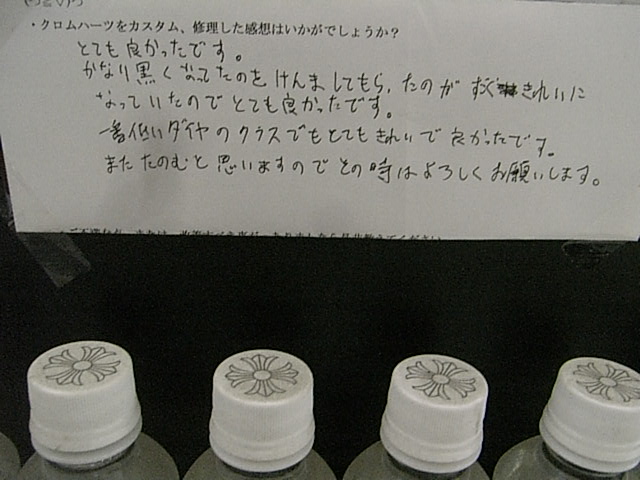 ・クロムハーツをカスタム、修理した感想はいかがでしょうか？
とても良かったです。
かなり黒くなってたのをけんましてもらったのがすぐきれいに
なっていたのでとても良かったです。
一番低いダイヤのクラスでもとてもきれいで良かったです。
またたのむと思いますのでその時はよろしくお願いします。